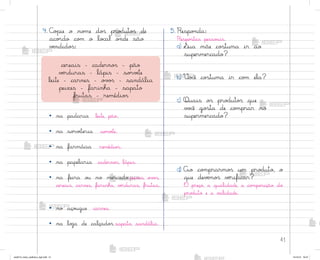 4. Copie o nome dos produtos de
acordo com o local onde são
vendidos:
cereais - cadernos - pão
verduras - lápis - sorvete
leite - carnes - ovos - sandália
peixes - farinha - sapato
frutas - remédios
• na padaria leite, pão.
• na sorveteria sorvete.
• na farmácia remédios.
• na papelaria cadernos, lápis.
• na feira ou no mercado peixes, ovos,
cereais, carnes, farinha, verduras, frutas.
• no açougue carnes.
• na loja de calçados sapato, sandália.
5. Responda:
Respostas pessoais.
a) Sua mãe costuma ir ao
supermercado?
b) Você costuma ir com ela?
c) Quais os produtos que
você gosta de comprar no
supermercado?
d) Ao comprarmos um produto, o
que devemos verificar?
O preço, a qualidade, a composição do
produto e a validade.
41